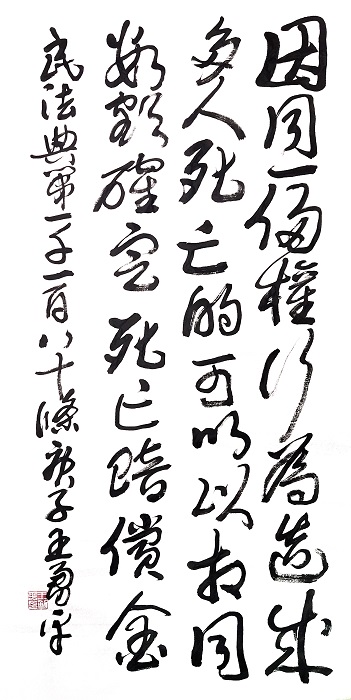 因同一侵權行為造成
多人死亡的可以以相同
數額確定死亡賠償金
民法典第一千一百八十條庚子王勇平